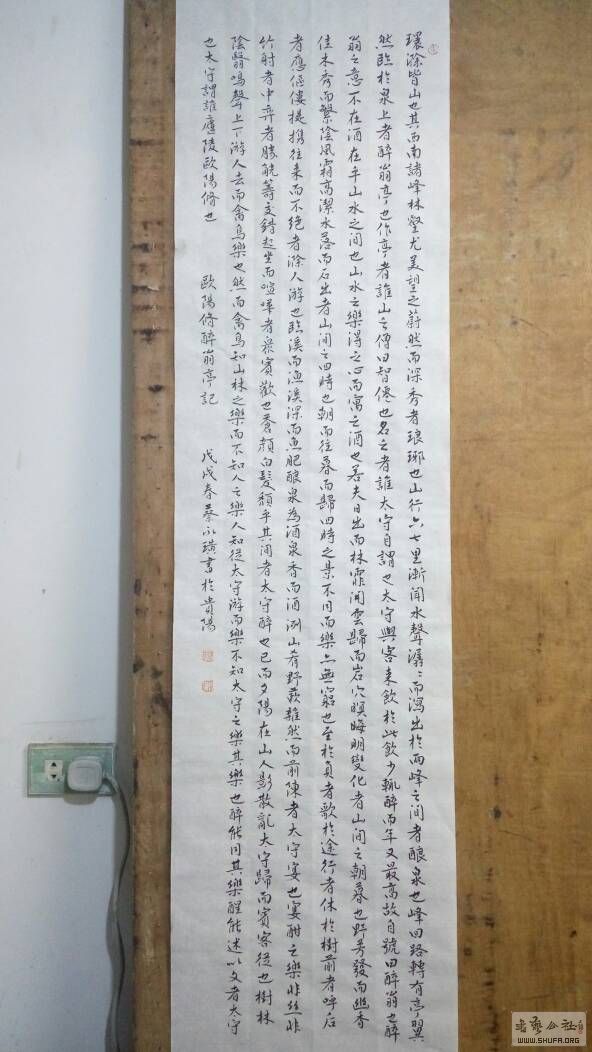 環滁皆山也其西南諸峰林壑尤美望之蔚然而深秀者琅琊也山行六七里漸聞水聲潺〻而瀉出於兩峰之間者釀泉也峰回路轉有亭翼
然臨於泉上者醉翁亭也作亭者誰山之僧曰智僊也名之者誰太守自謂也太守與客来飲於此飲少輒醉而年又最高故自號曰醉翁也醉
翁之意不在酒在乎山水之間也山水之樂得之心而寓之酒也若夫日出而林霏開雲歸而岩穴暝晦明變化者山間之朝暮也野芳發而幽香
佳木秀而繁陰風霜高潔水落而石出者山間之四時也朝而往暮而歸四時之景不同而樂亦無窮也至於負者歌於途行者休於樹前者呼后
者應傴僂提携往来而不绝者滁人游也臨溪而漁溪深而魚肥釀泉為酒泉香而酒洌山肴野蔌雜然而前陳者太守宴也宴酣之樂非丝非
竹射者中弈者勝觥籌交錯起坐而喧嘩者眾賓歡也蒼顏白髮頹乎其間者太守醉也已而夕陽在山人影散亂太守歸而賓客從也樹林
陰翳鳴聲上下游人去而禽鳥樂也然而禽鳥知山林之樂而不知人之樂人知從太守游而樂不知太守之樂其樂也醉能同其樂醒能述以文者太守
也太守謂誰廬陵歐陽修也 歐陽修醉翁亭記 戊戌春蔡永璜書於貴陽
WWW.SHUFA.ORG